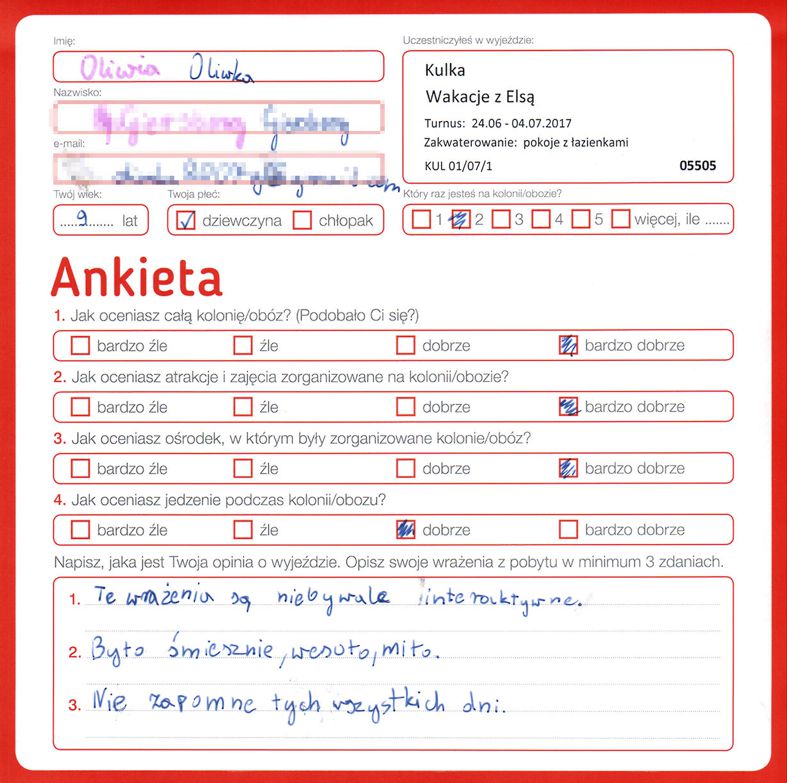 Imię:
Oliwia Oliwka
Nazwisko:
e-mail:
Twój wiek:
.....9....... lat
Twoja płeć:
dziewczyna chłopak
Uczestniczyłeś w wyjeździe:
Kulka
Wakacje z Elsą
Turnus: 24.06 - 04.07.2017
Zakwaterowanie: pokoje z łazienkami
KUL 01/07/1 05505
Który raz jesteś na kolonii/obozie?
1 2 3 4 5 więcej, ile .......
Ankieta
1. Jak oceniasz całą kolonię/obóz? (Podobało Ci się?)
bardzo źle źle dobrze bardzo dobrze
2. Jak oceniasz atrakcje i zajęcia zorganizowane na kolonii/obozie?
bardzo źle źle dobrze bardzo dobrze
3. Jak oceniasz ośrodek, w którym były zorganizowane kolonie/obóz?
bardzo źle źle dobrze bardzo dobrze
4. Jak oceniasz jedzenie podczas kolonii/obozu?
bardzo źle źle dobrze bardzo dobrze
Napisz, jaka jest Twoja opinia o wyjeździe. Opisz swoje wrażenia z pobytu w minimum 3 zdaniach.
1. Te wrażenia są niebywale interaktywne.
2. Było śmiesznie, wesoło, miło.
3. Nie zapomne tych wszystkich dni.